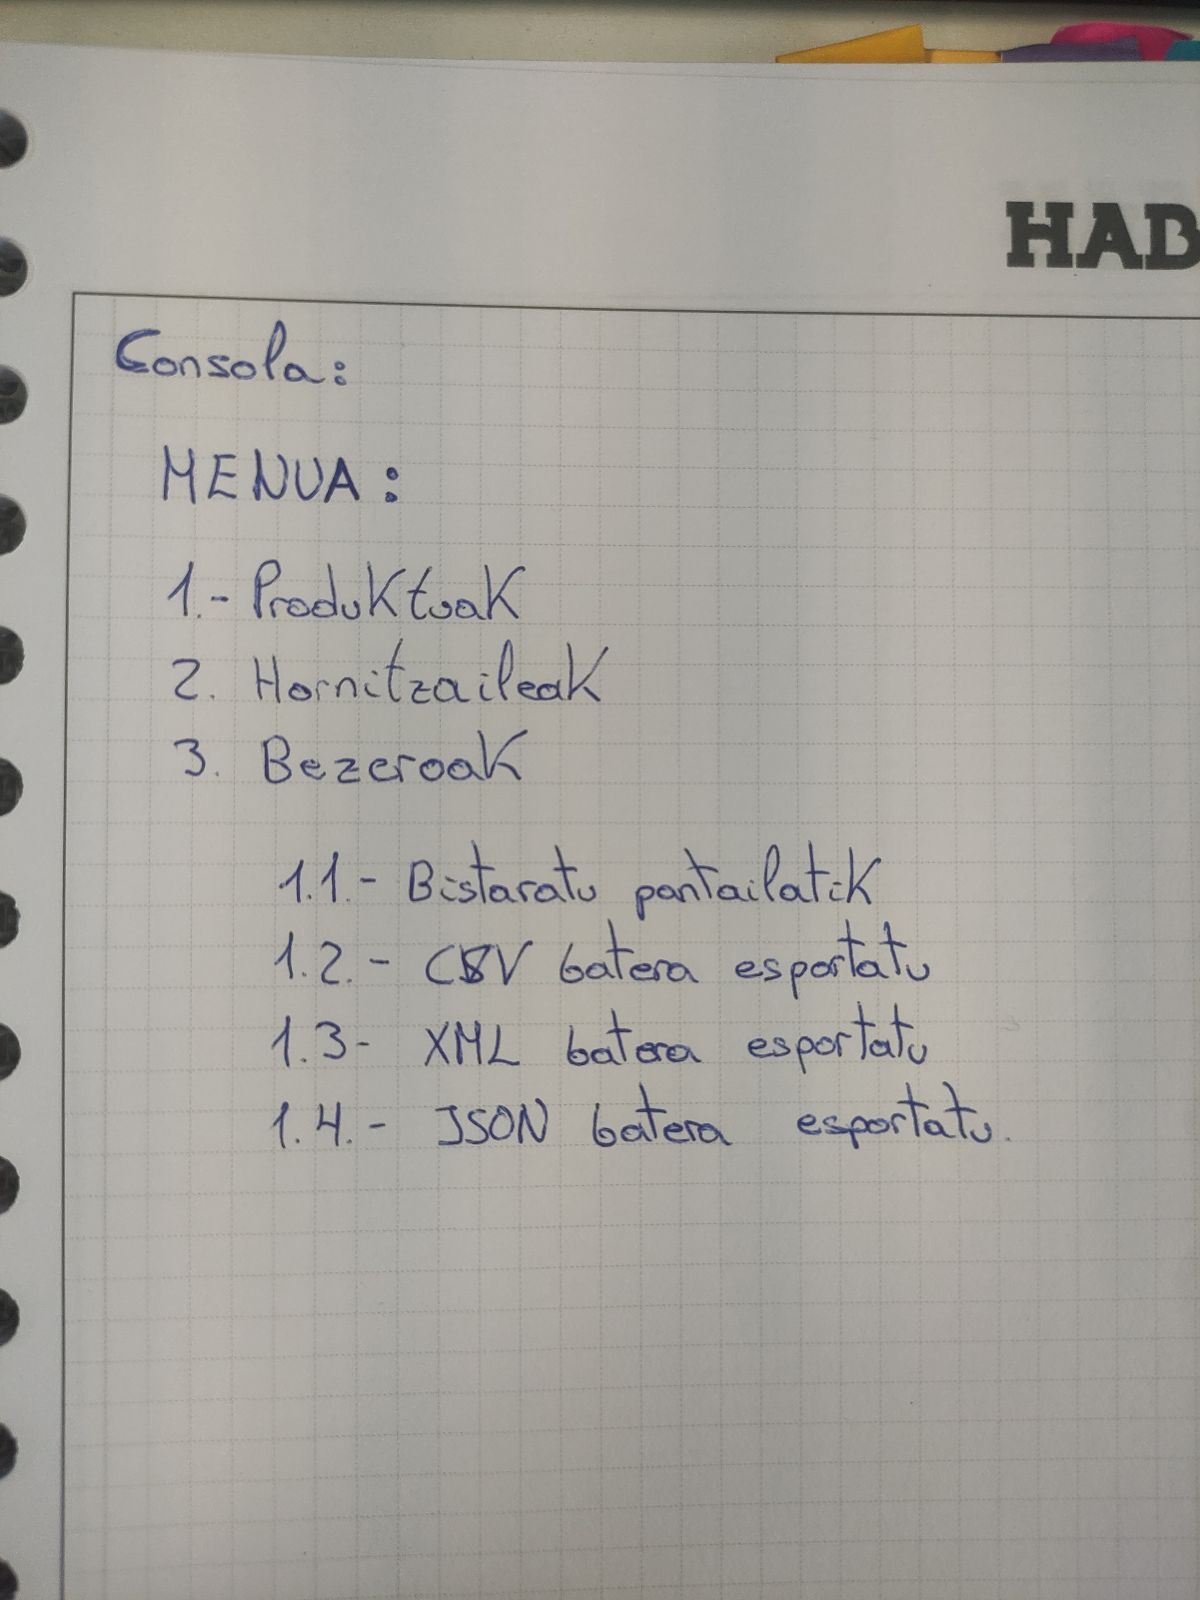 HAB
Consola:
MENUA:
1.- Produktuak
2. Hornitzaileak
3. Bezeroak
1.1.- Bistaratu pantailatik
1.2.- CSV batera esportatu
1.3- XML batera esportatu
1.4.- JSON batera esportatu.